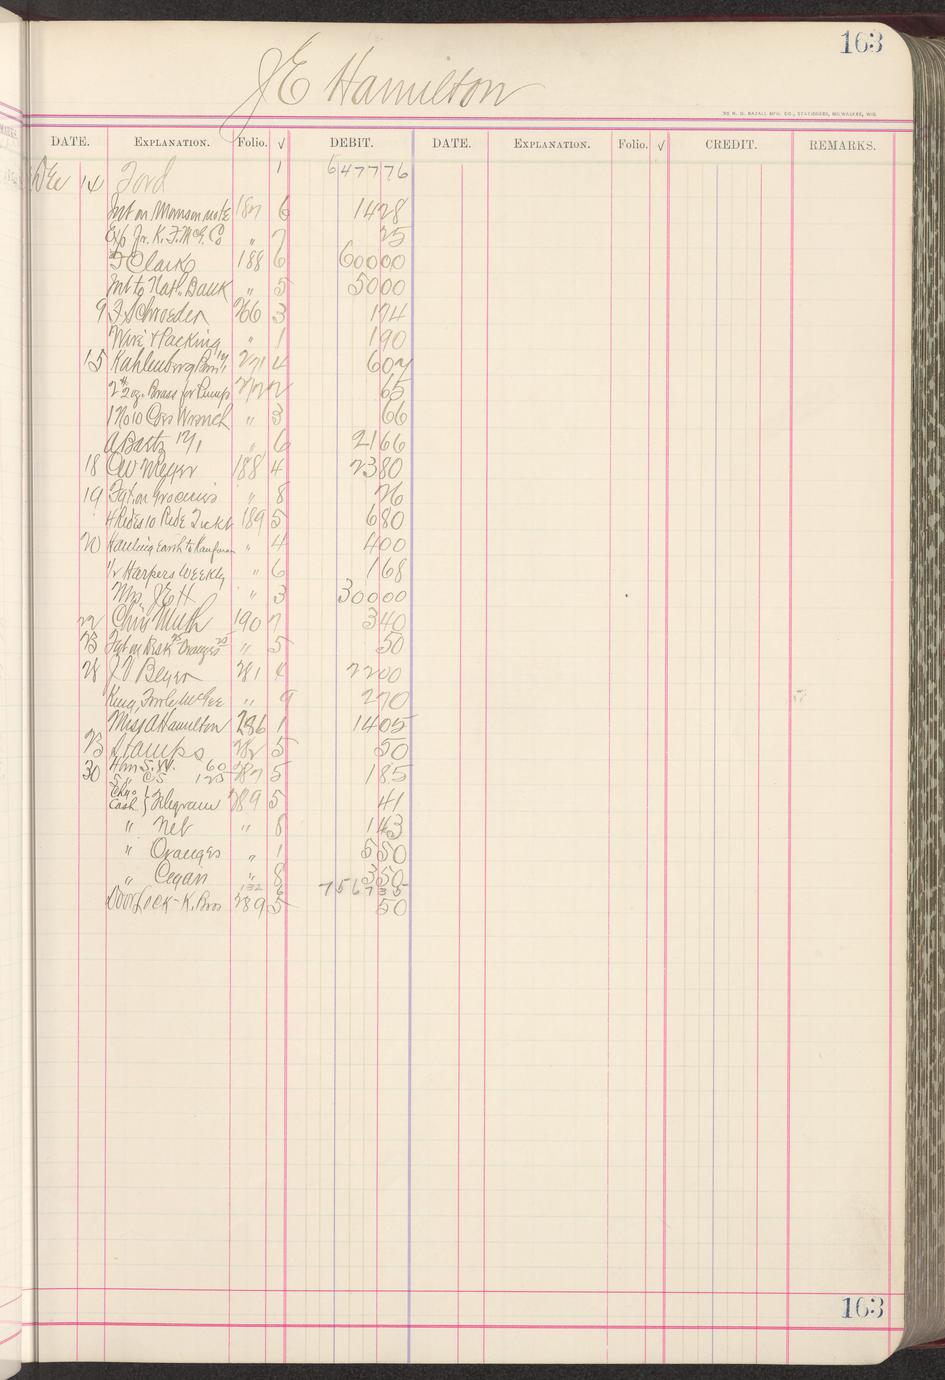 163
J E Hamilton
THE H. G. RAZALL MFG. CO., STATIONERS, MILWAUKEE, WIS.
DATE. EXPLANATION. Folio. √ DEBIT. DATE. EXPLANATION. Folio. √ CREDIT. REMARKS.
Dec 14 Ford 1 647776
Int on Monson note 187 6 1428
Exp Jr. K. F. McG. Co " 7 25
F Clark 188 6 60000
Int to Nat. Bank " 5 5000
9 F Schroeder 266 3 174
Wire & Packing " 1 190
15 Kahlenberg Bros 271 4 607
2# 2oz. Brass for Pump 272 2 65
1 No 10 Coes Wrench " 3 66
A Bartz 12/1 " 6 2166
18 CW Meyer 188 4 2380
19 Fgt. on Groceries " 8 26
4 Rides 10 Ride Ticket 189 5 680
20 Hauling Earth to Kaufman " 4 400
1/2 Harpers Weekly " 6 168
Mrs. JEH " 3 30000
22 Chris Muth 190 7 340
23 Fgt on Desk 25 Oranges 25 " 5 50
28 J V Beyer 281 4 2200
King, Fowle McGee " 9 270
Miss A Hamilton 286 1 1405
23 Stamps 282 5 50
30 Ham S.W. 60 287 5 185
S.W. CS 125
Chgo
Cash } Telegram 289 5 41
" Net " 8 143
" Oranges " 1 550
" Cegars " 8 350
132 6 756735
Door Lock - K. Bros 289 5 50
163